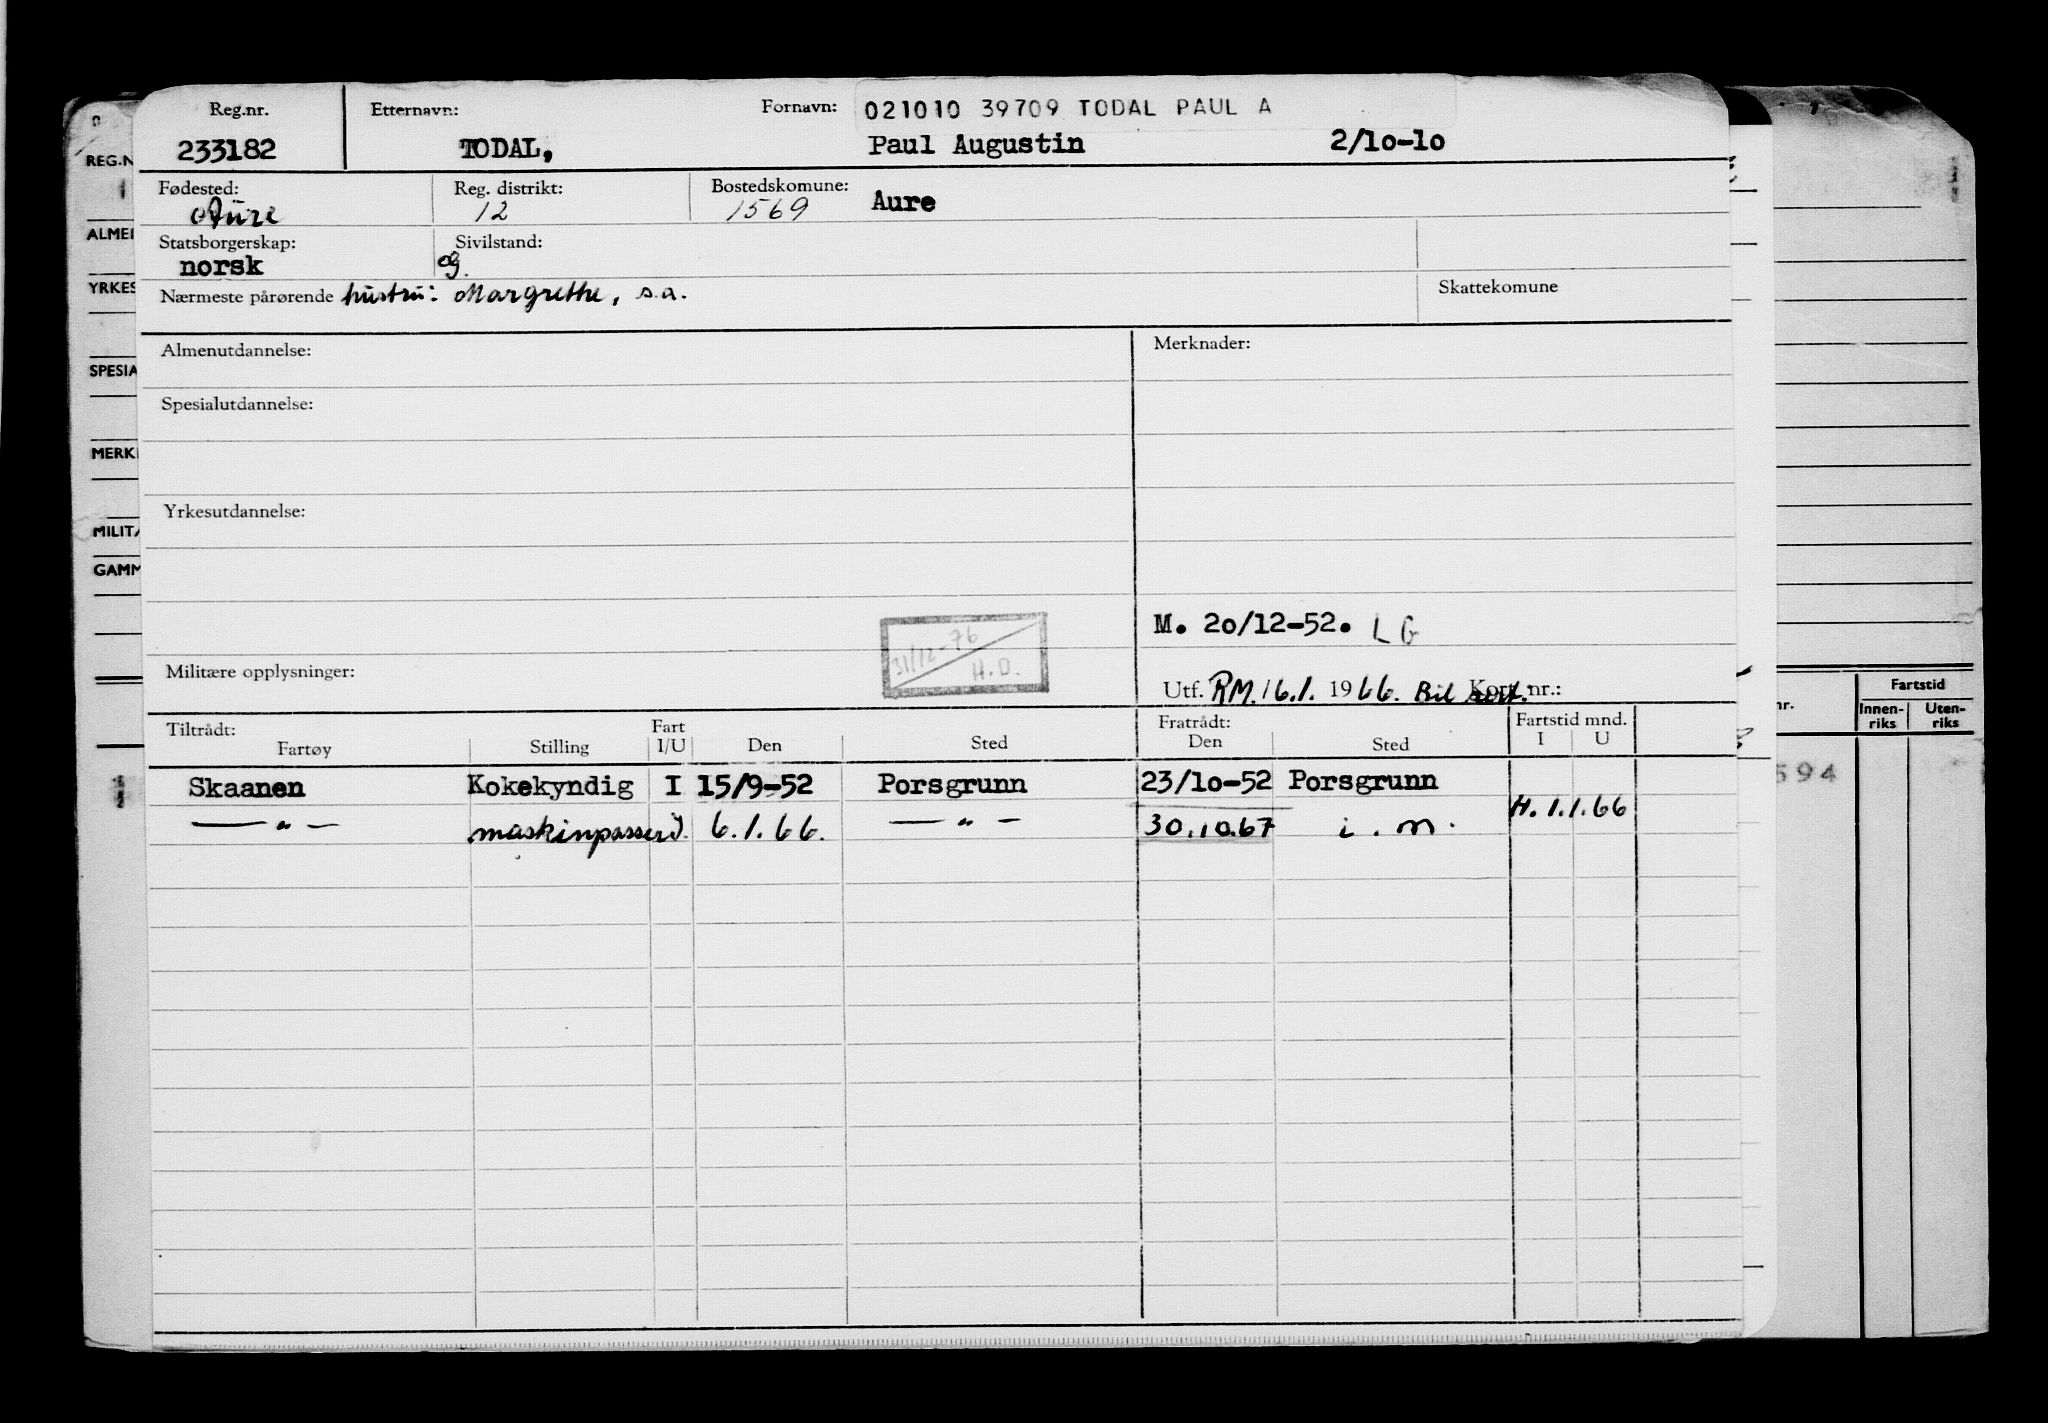 Reg.nr. Etternavn: Fornavn: 021010 39709 TODAL PAUL A
233182 TODAL, Paul Augustin 2/10-10
Fødested: Reg. distrikt: Bostedskomune:
Aure 12 1569 Aure
Statsborgerskap: Sivilstand:
norsk g.
Nærmeste pårørende hustru: Margrethe, s.a. Skattekomune
Almenutdannelse: Merknader:
Spesialutdannelse:
Yrkesutdannelse:
M. 20/12-52. LG
31/12-76
H.O.
Militære opplysninger:
Utf. RM. 16.1. 1966. Bil Kort nr.:
Tiltrådt: Fart Fratrådt: Fartstid mnd.
Fartøy Stilling I/U Den Sted Den Sted I U
Skaanen Kokekyndig I 15/9-52 Porsgrunn 23/10-52 Porsgrunn
— " — maskinpasser 6.1.66. — " — 30.10.67 i.m. H.1.1.66
REG.N
ALMEN
YRKES
SPESIA
MERK
MILIT
GAMM
nr. Fartstid
Innen-
riks
Uten-
riks
594